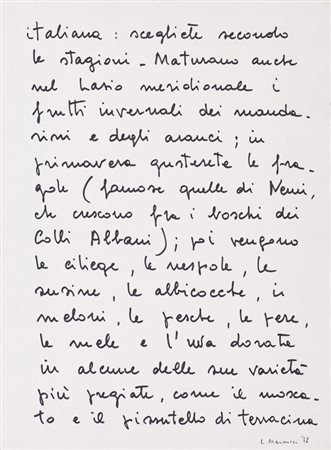 italiana : scegliete secondo
le stagioni - Maturano anche
nel Lazio meridionale i
frutti invernali dei manda-
rini e degli aranci ; in
primavera gusterete le fra-
gole ( famose quelle di Nemi,
che crescono fra i boschi dei
Colli Albani ) ; poi vengono
le ciliege , le nespole , le
susine , le albicocche , i
meloni , le pesche , le pere ,
le mele e l'uva dorata
in alcune delle sue varietà
più pregiate , come il mosca-
to e il pizzutello di terracina
L. Marcucci '78